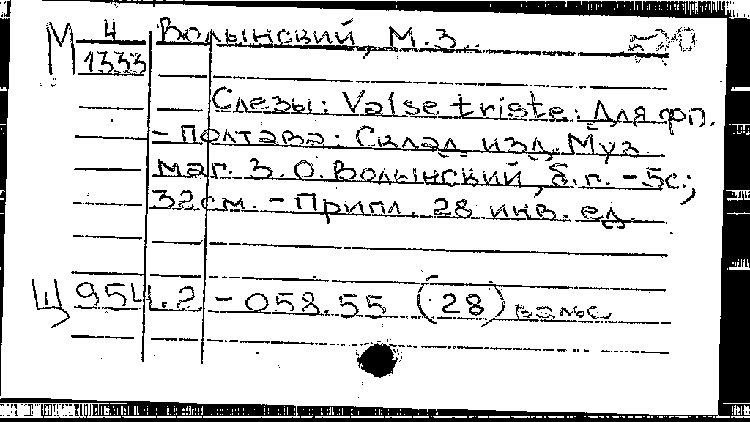 М 4 Волынский, М.З. 520
1333
Слезы: Valse triste: Для фп.
- Полтава: Склад изд. Муз.
маг. З.О. Волынский, б.г. - 5с.;
32см. - Припл. 28 инв. ед.
Ц 954.2 - 058.55 (28) вальс